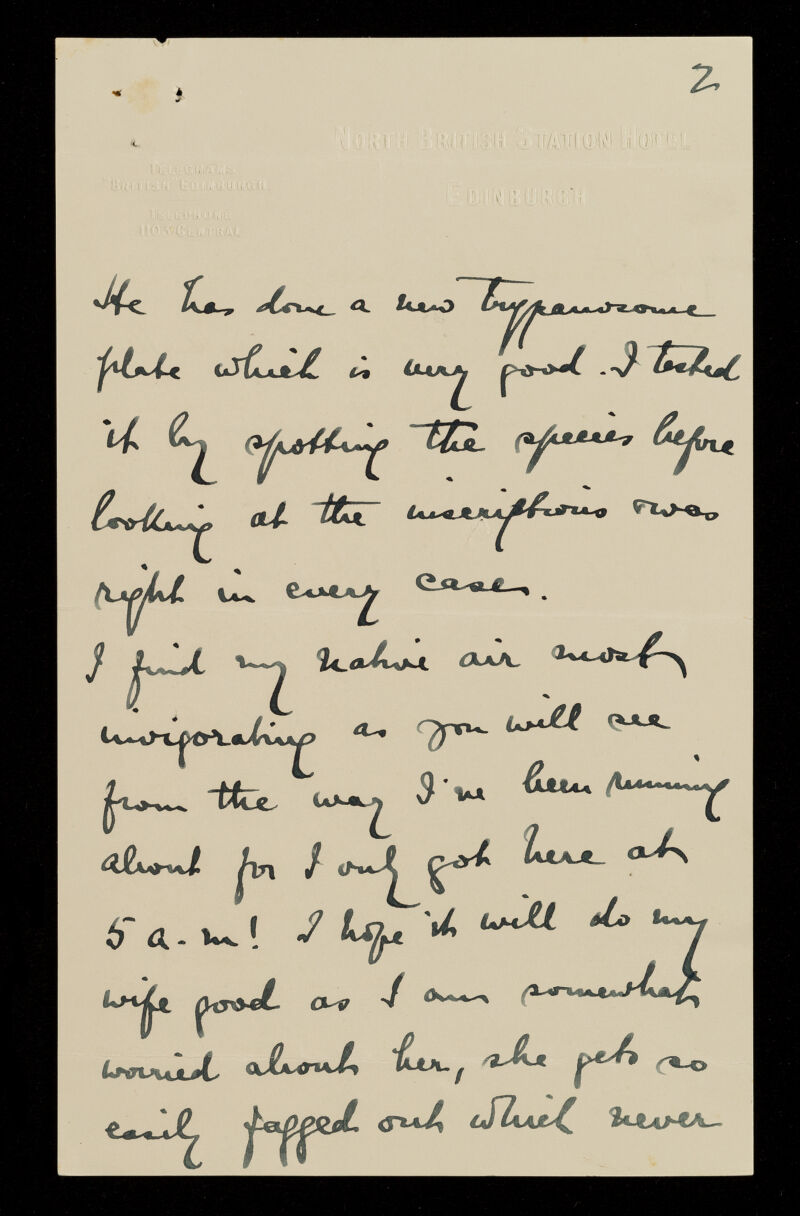 2
NORTH BRITISH STATION HOTEL
EDINBURGH
TELEGRAMS
"BRITISH EDINBURGH"
TELEPHONE
CENTRAL
He has done a new trypanosome
plate which is very good. I tested
it by spotting the species before
looking at the inscriptions & was
right in every case.
I find my native air most
invigorating as you will see
from the way I've been running
about for I only got here at
5 a.m! I hope it will do my
wife good as I am somewhat
worried about her, she gets so
easily fagged out which never